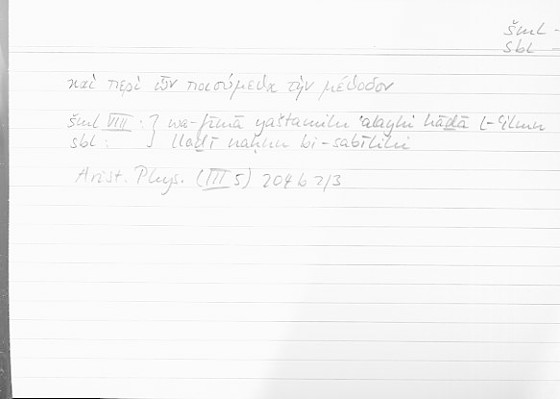 šml -
sbl -
καὶ περὶ ὧν ποιούμεθα τὴν μέθοδον
šml VIII : } wa-fīmā yaštamilu ʿalayhi hāḏā l-ʿilmu
sbl : } llaḏī naḥnu bi-sabīlihi
Arist. Phys. (III 5) 204 b 2/3